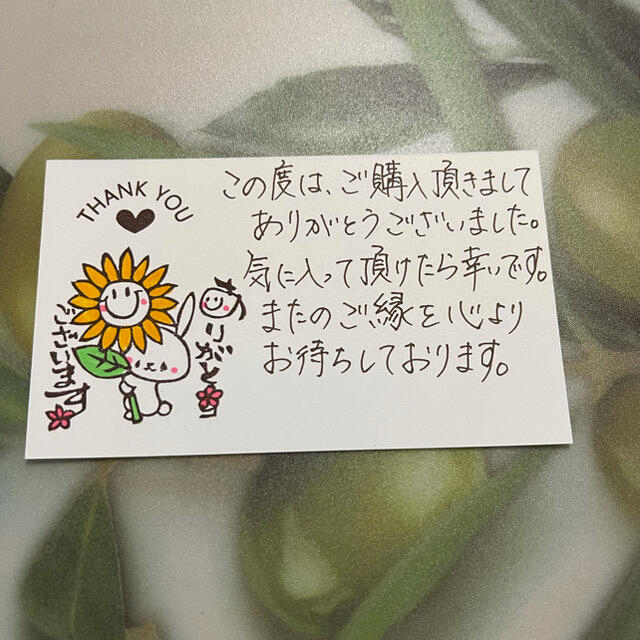 THANK YOU
ありがとう
ございます
この度は、ご購入頂きまして
ありがとうございました。
気に入って頂けたら幸いです。
またのご縁を心より
お待ちしております。